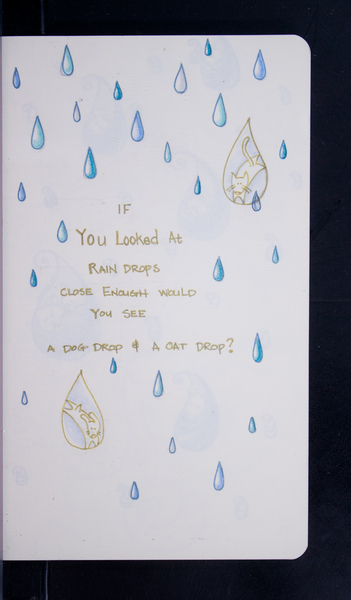 IF
You Looked At
RAIN DROPS
CLOSE ENOUGH WOULD
YOU SEE
A DOG DROP & A CAT DROP?